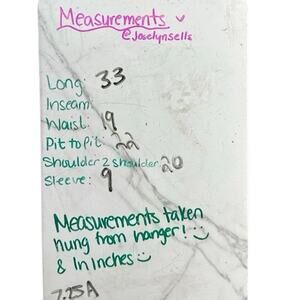 Measurements
@Joselynsells
Long: 33
Inseam:
Waist: 19
Pit to Pit: 22
Shoulder 2 Shoulder 20
Sleeve: 9
Measurements taken
hung from hanger!
& In Inches
7.25A